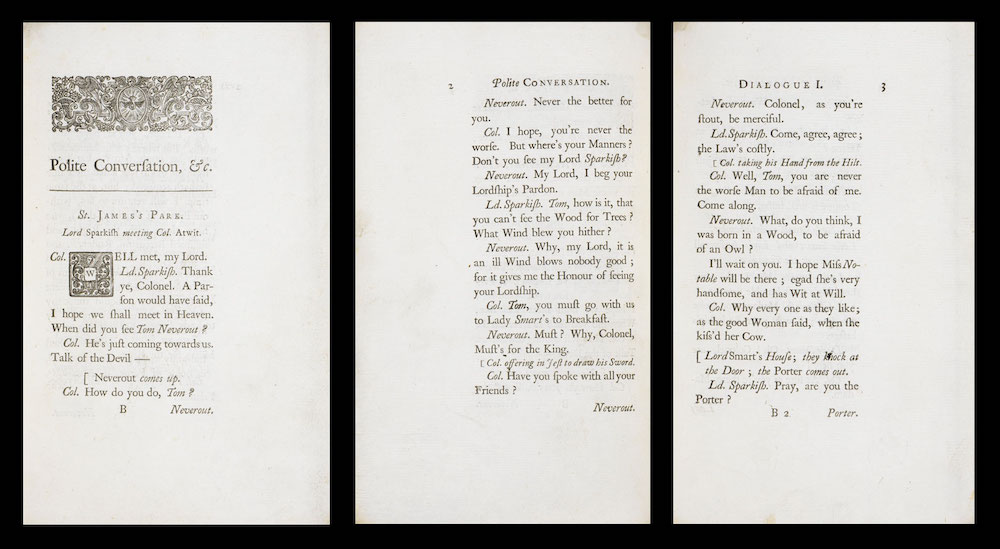 Polite Converſation, &c.
St. JAMES'S PARK.
Lord Sparkiſh meeting Col. Atwit.
Col. WELL met, my Lord.
Ld. Sparkiſh. Thank
ye, Colonel. A Par-
ſon would have ſaid,
I hope we ſhall meet in Heaven.
When did you ſee Tom Neverout?
Col. He's juſt coming towards us.
Talk of the Devil —
[ Neverout comes up.
Col. How do you do, Tom?
B Neverout.
2 Polite CONVERSATION.
Neverout. Never the better for
you.
Col. I hope, you're never the
worſe. But where's your Manners?
Don't you ſee my Lord Sparkiſh?
Neverout. My Lord, I beg your
Lordſhip's Pardon.
Ld. Sparkiſh. Tom, how is it, that
you can't ſee the Wood for Trees?
What Wind blew you hither?
Neverout. Why, my Lord, it is
an ill Wind blows nobody good;
for it gives me the Honour of ſeeing
your Lordſhip.
Col. Tom, you muſt go with us
to Lady Smart's to Breakfaſt.
Neverout. Muſt? Why, Colonel,
Muſt's for the King.
[ Col. offering in Jeſt to draw his Sword.
Col. Have you ſpoke with all your
Friends?
Neverout.
DIALOGUE I. 3
Neverout. Colonel, as you're
ſtout, be merciful.
Ld. Sparkiſh. Come, agree, agree;
the Law's coſtly.
[ Col. taking his Hand from the Hilt.
Col. Well, Tom, you are never
the worſe Man to be afraid of me.
Come along.
Neverout. What, do you think, I
was born in a Wood, to be afraid
of an Owl?
I'll wait on you. I hope Miſs No-
table will be there; egad ſhe's very
handſome, and has Wit at Will.
Col. Why every one as they like;
as the good Woman ſaid, when ſhe
kiſs'd her Cow.
[ Lord Smart's Houſe; they knock at
the Door; the Porter comes out.
Ld. Sparkiſh. Pray, are you the
Porter?
B 2 Porter.